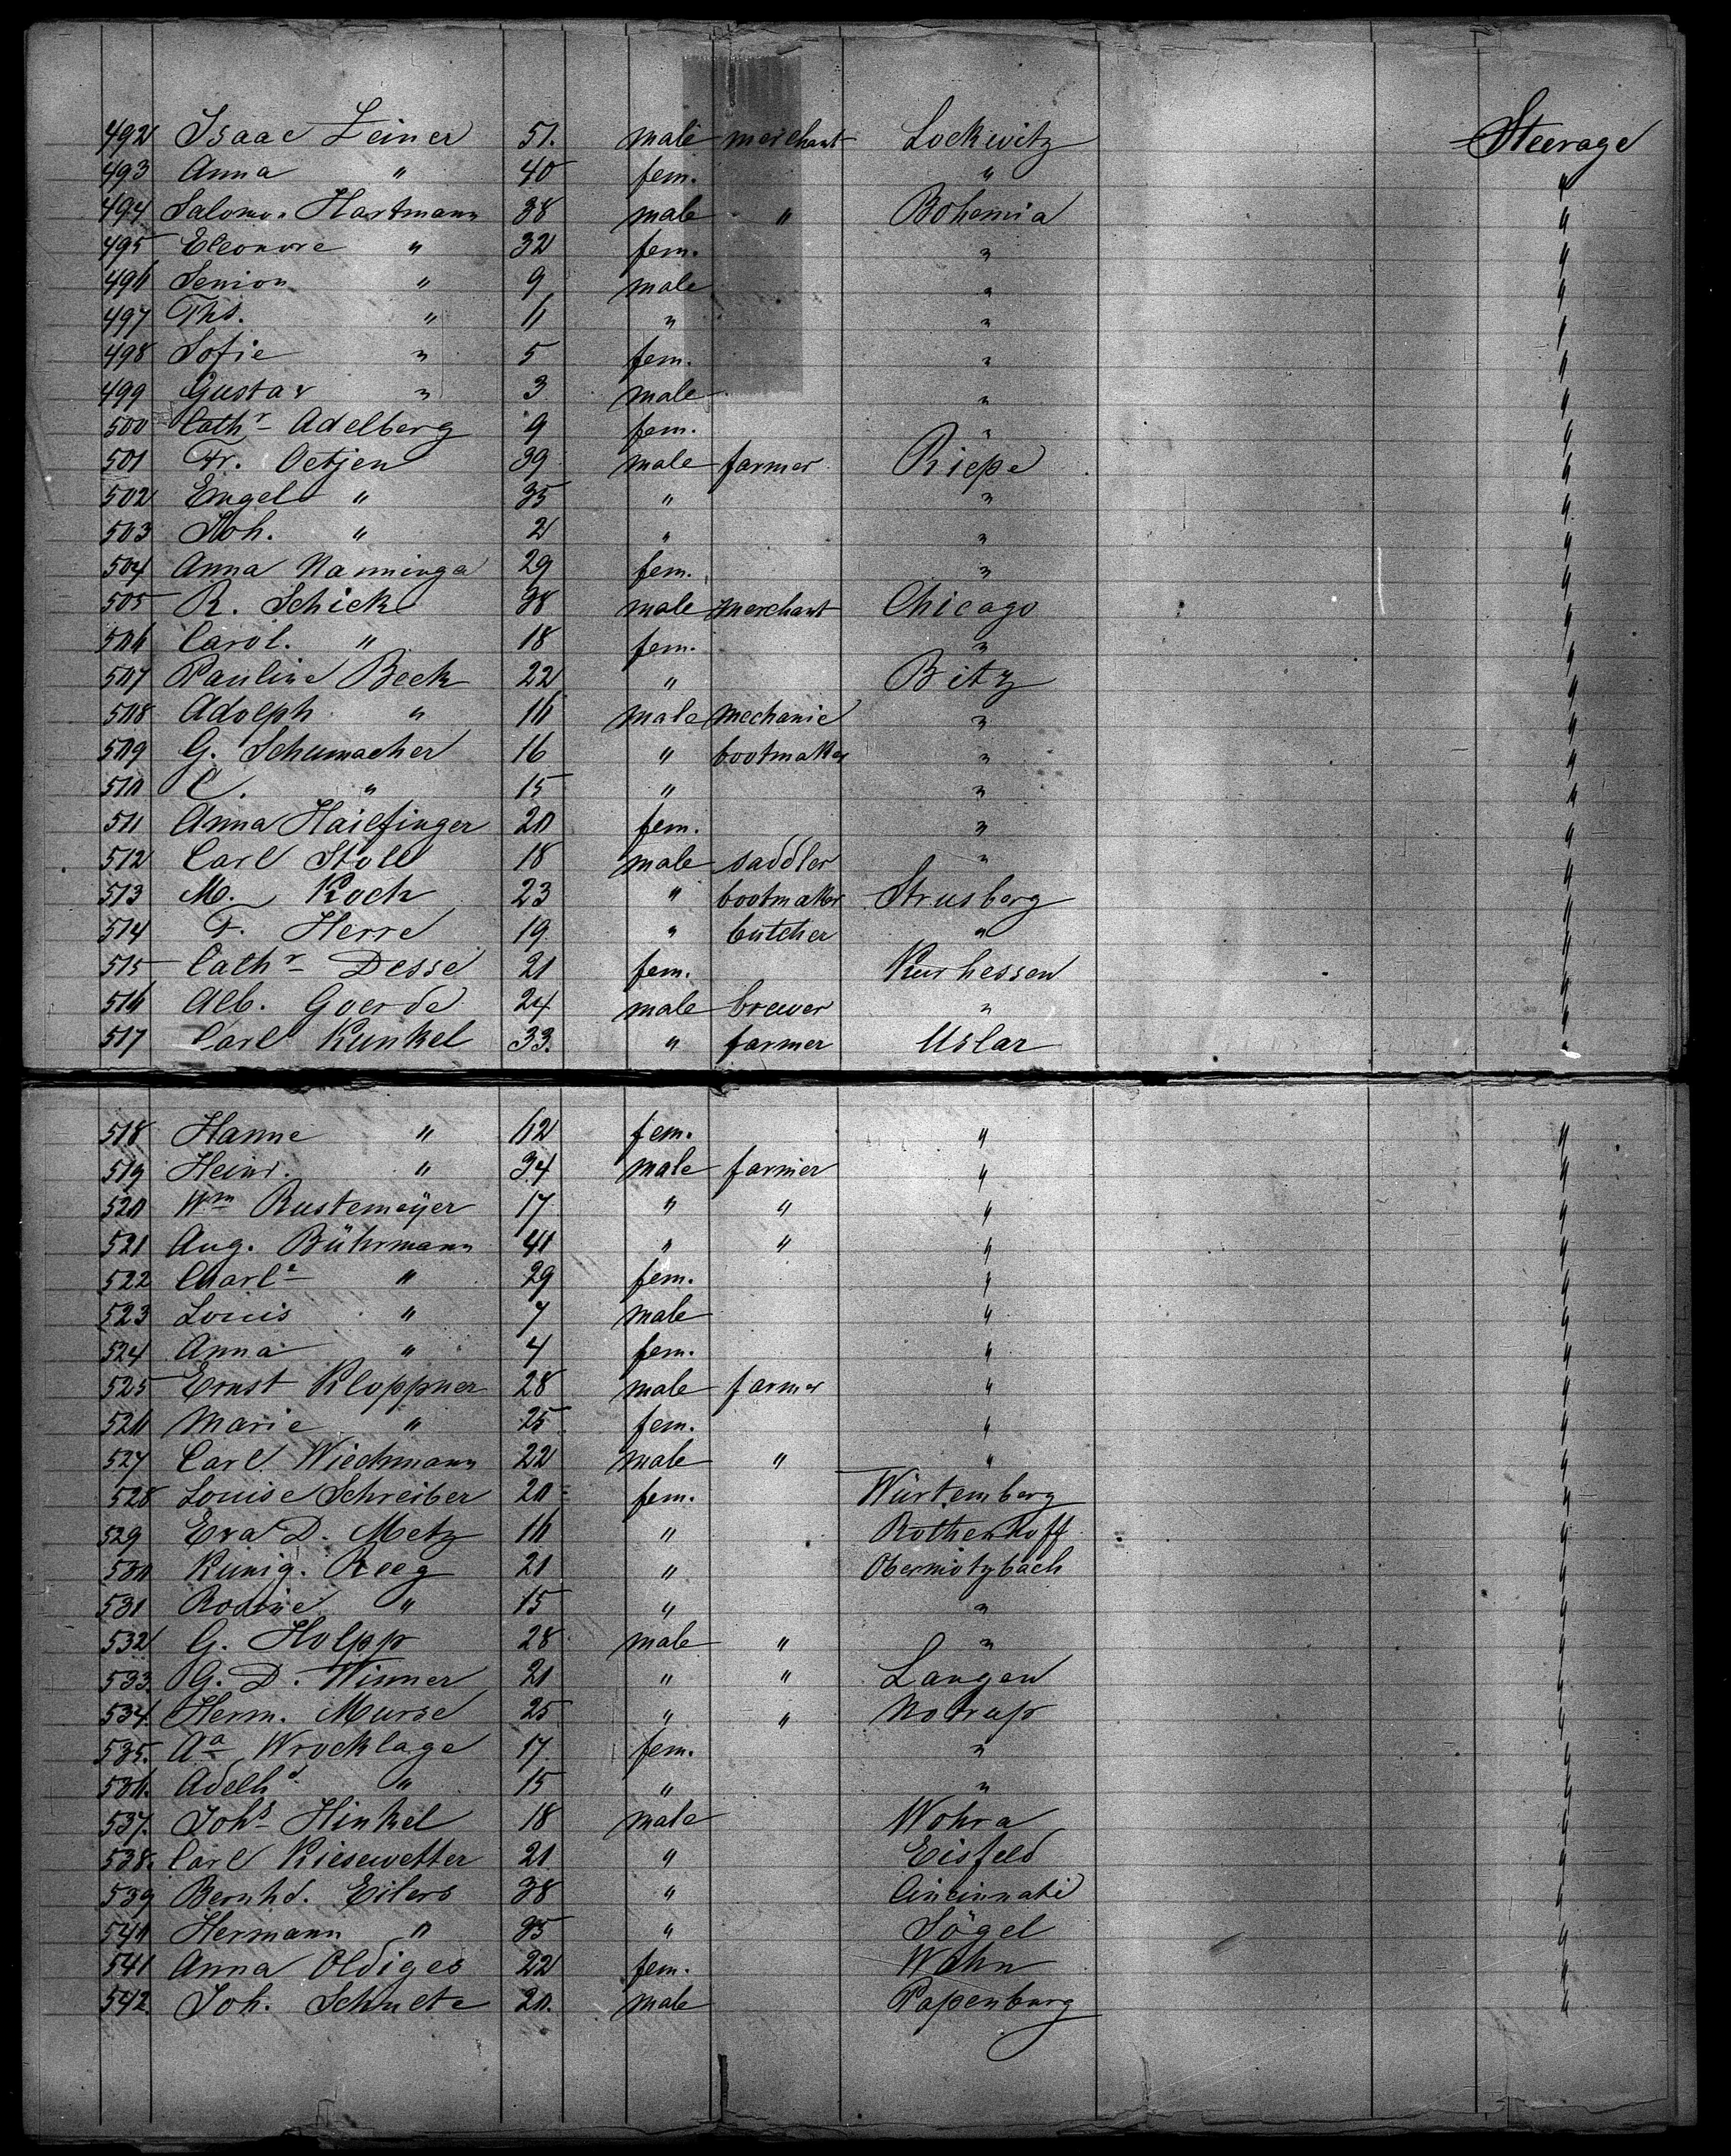 492 Isaac Leiner 51. male merchant Lockwitz Steerage
493 Anna " 40 fem. " "
494 Salomon Hartmann 38 male " Bohemia "
495 Eleonore " 32 fem. " "
496 " 9 male " "
497 Ths. " 11 " " "
498 Sofie " 5 fem. " "
499 Gustav " 3 male " "
500 Cathr Adelberg 9 fem. " "
501 Fr. Oetjen 39 male farmer Riepe "
502 Engel " 35 " " "
503 Joh. " 2 " " "
504 Anna Nanninga 29 fem. " "
505 R. Schick 38 male merchant Chicago "
506 Carol. " 18 fem. " "
507 Pauline Beck 22 " Bitz "
508 Adolph " 16 male mechanic " "
509 G. Schumacher 16 " bootmaker " "
510 C. " 15 " " "
511 Anna Hailfinger 20 fem. " "
512 Carl Stoll 18 male saddler " "
513 M. Koch 23 " bootmaker Strusberg "
514 F. Herre 19 " butcher " "
515 Cathr Desse 21 fem. Kurhessen "
516 Alb. Goerde 24 male brewer " "
517 Carl Kunkel 33. " farmer Uslar "
518 Hanne " 62 fem. " "
519 Heinr. " 34 male farmer " "
520 Wm Rustemeyer 17 " " " "
521 Aug. Bührmann 41 " " " "
522 Charle " 29 fem. " "
523 Louis " 7 male " "
524 Anna " 4 fem. " "
525 Ernst Kloppner 28 male farmer " "
526 Marie " 25 fem. " "
527 Carl Wiechmann 22 male " " "
528 Louise Schreiber 20 fem. Würtemberg "
529 Eva D. Metz 16 " Rothenhoff "
530 Kunig. Reeg 21 " Obermotzbach "
531 " 15 " " "
532 G. Holpp 28 male " " "
533 G. D. Winner 21 " " Langen "
534. Herm. Murse 25 " " Notrup "
535. Aa Wrocklage 17 fem. " "
536. Adelhd " 15 " " "
537. Johs Hinkel 18 male Wohra "
538. Carl Kiesewetter 21 " Eisfeld "
539 Bernhd. Eilers 38 " Cincinnati "
540 Hermann " 35 " Sögel "
541 Anna Oldiges 22 fem. Wahn "
542. Joh. Schulte 20. male Papenburg "